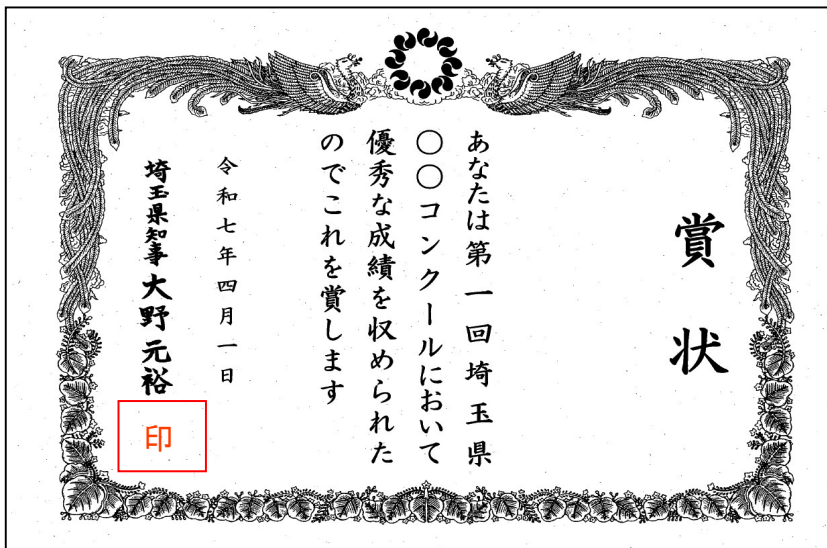 賞状
あなたは第一回埼玉県
〇〇コンクールにおいて
優秀な成績を収められた
のでこれを賞します
令和七年四月一日
埼玉県知事 大野元裕
印